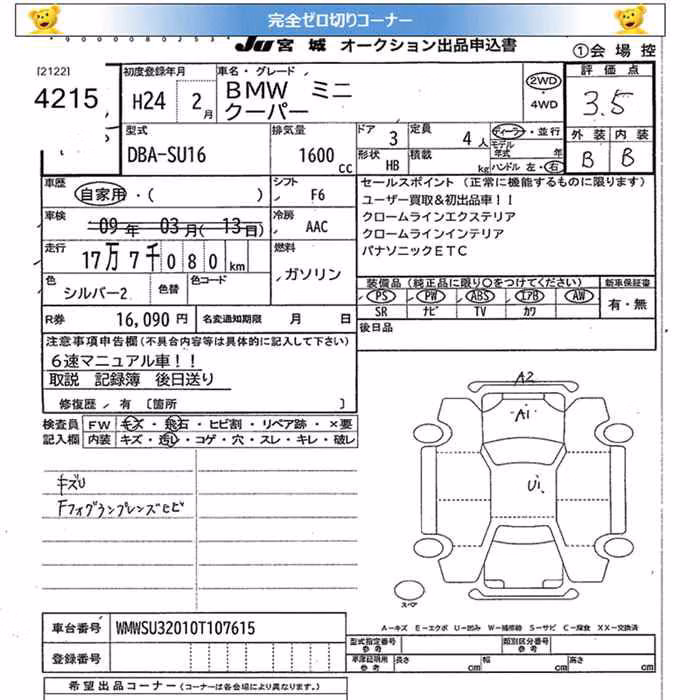 完全ゼロ切りコーナー
0000080253
JU 宮城 オークション出品申込書
①会場控
[2122]
4215
初度登録年月
H24 2月
車名・グレード
BMW ミニ
クーパー
2WD
・
4WD
評価点
3.5
外装 内装
B B
型式
DBA-SU16
排気量
1600 cc
ドア 3
定員 4人
ディーラー・並行
モデル年式 年
形状 HB
積載 kg
ハンドル 左・右
車歴
自家用・( )
シフト
F6
車検
09年 03月(13日)
冷房
AAC
走行
17万7千080km
燃料
ガソリン
色
シルバー2
色替
色コード
セールスポイント (正常に機能するものに限ります)
ユーザー買取&初出品車!!
クロームラインエクステリア
クロームラインインテリア
パナソニックETC
装備品(純正品に限り○をつけてください)
新車保証書
PS PW ABS エアB AW
SR ナビ TV カワ
有・無
R券 16,090円
名変通知期限 月 日
後日品
注意事項申告欄(不具合内容等は具体的に記入して下さい)
6速マニュアル車!!
取説 記録簿 後日送り
修復歴・有 〔箇所 〕
検査員記入欄
FW キズ・飛石・ヒビ割・リペア跡・×要
内装 キズ・汚レ・コゲ・穴・スレ・キレ・破レ
キズU
Fフォグランプレンズヒビ
A2
A1
U1
スペア
A-キズ E-エクボ U-凹み W-補修跡 S-サビ C-腐食 XX-交換済
車台番号 WMWSU32010T107615
登録番号
型式指定番号 参考
類別区分番号 参考
車庫証明用 参考
長さ cm
幅 cm
高さ cm
希望出品コーナー(コーナーは各会場により異なります。)